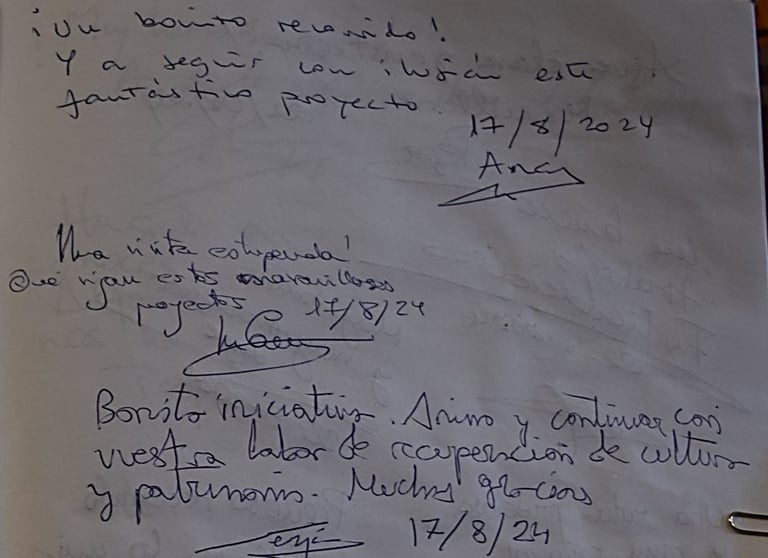 ¡Un bonito recorrido!
Y a seguir con ilusión este
fantástico proyecto.
17/8/2024
Ana
Una visita estupenda!
Que sigan estos maravillosos
proyectos 17/8/24
Bonita iniciativa. Animo y continuar con
vuestra labor de recuperación de cultura
y patrimonio. Muchas gracias
17/8/24